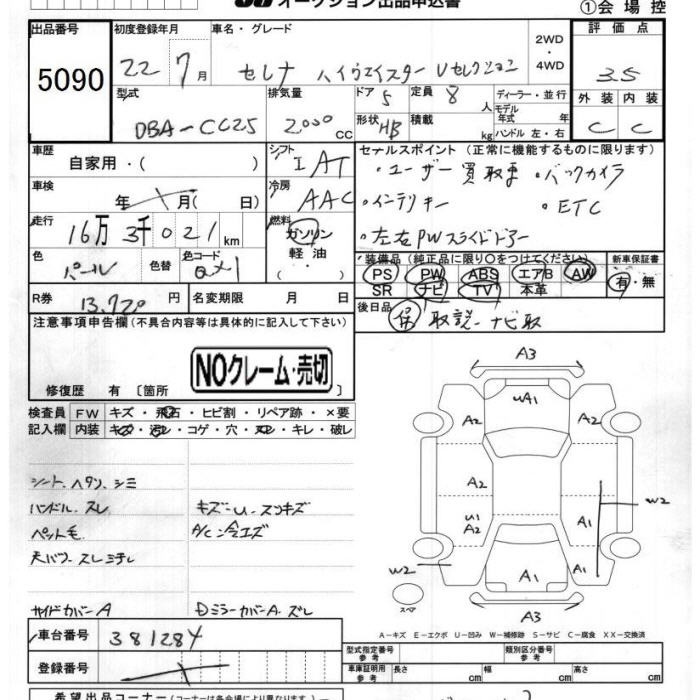 オークション出品申込書
①会場控
出品番号 初度登録年月 車名・グレード 2WD ・4WD 評価点
5090 22 7月 セレナ ハイウェイスター Vセレクション 3.5
型式 排気量 ドア 5 定員 8 人 ディーラー・並行 外装 内装
DBA-CC25 2000 CC 形状 HB 積載 kg モデル年式 年 ハンドル 左・右 C C
車歴 シフト セールスポイント(正常に機能するものに限ります)
自家用・( ) I AT ・ユーザー買取車 ・バックカメラ
車検 年 月( 日) 冷房 AAC ・インテリキー ・ETC
走行 16万3千021km 燃料 ガソリン・軽油・( ) ・左右PWスライドドアー
色 パール 色替 色コード QX1
装備品(純正品に限り○をつけてください) 新車保証書
PS PW ABS エアB AW 有・無
SR ナビ TV 本革
R券 13,720円 名変期限 月 日
後日品 保 取説 ナビ取
注意事項申告欄(不具合内容等は具体的に記入して下さい)
NOクレーム・売切
修復歴 有 〔箇所
検査員記入欄 FW キズ・飛石・ヒビ割・リペア跡・×要
内装 キズ・汚レ・コゲ・穴・スレ・キレ・破レ
シート、ヘタリ、シミ
ハンドル、スレ キズ-U-スリキズ
ペット毛 A/C:冷エズ
サイドカバーA Dミラーカバー A、ズレ
A3
UA1
A2 A2
A2
U1 A2 A1 W2
W2 A1 A1
スペア A3
A-キズ E-エクボ U-凹み W-補修跡 S-サビ C-腐食 XX-交換済
車台番号 381284
登録番号
型式指定番号 参考 類別区分番号 参考
車庫証明用 参考 長さ cm 幅 cm 高さ cm
希望出品コーナー